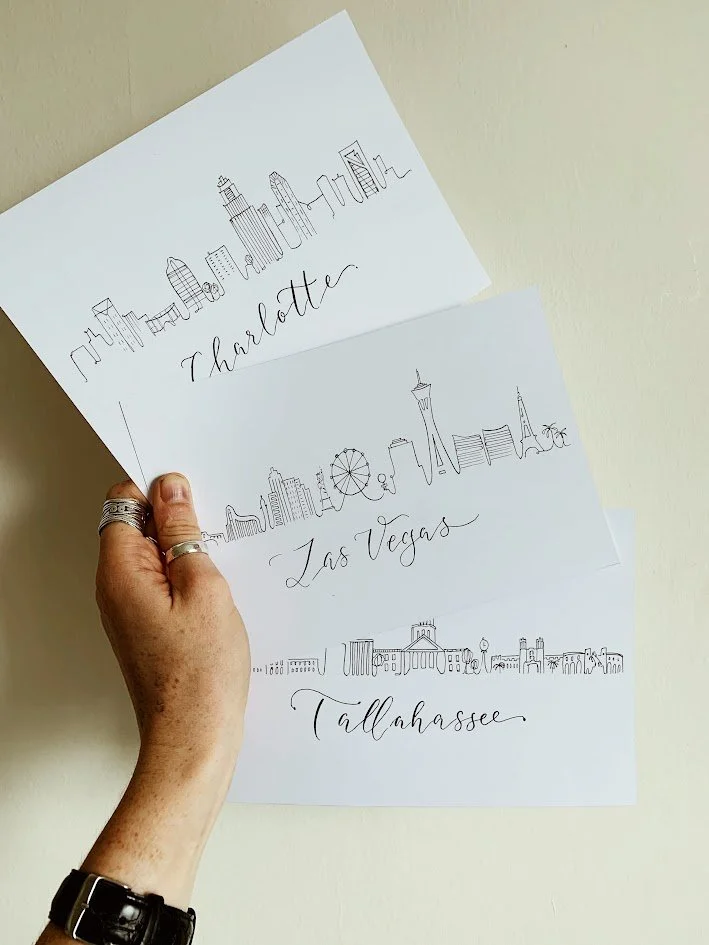 Charlotte
Las Vegas
Tallahassee